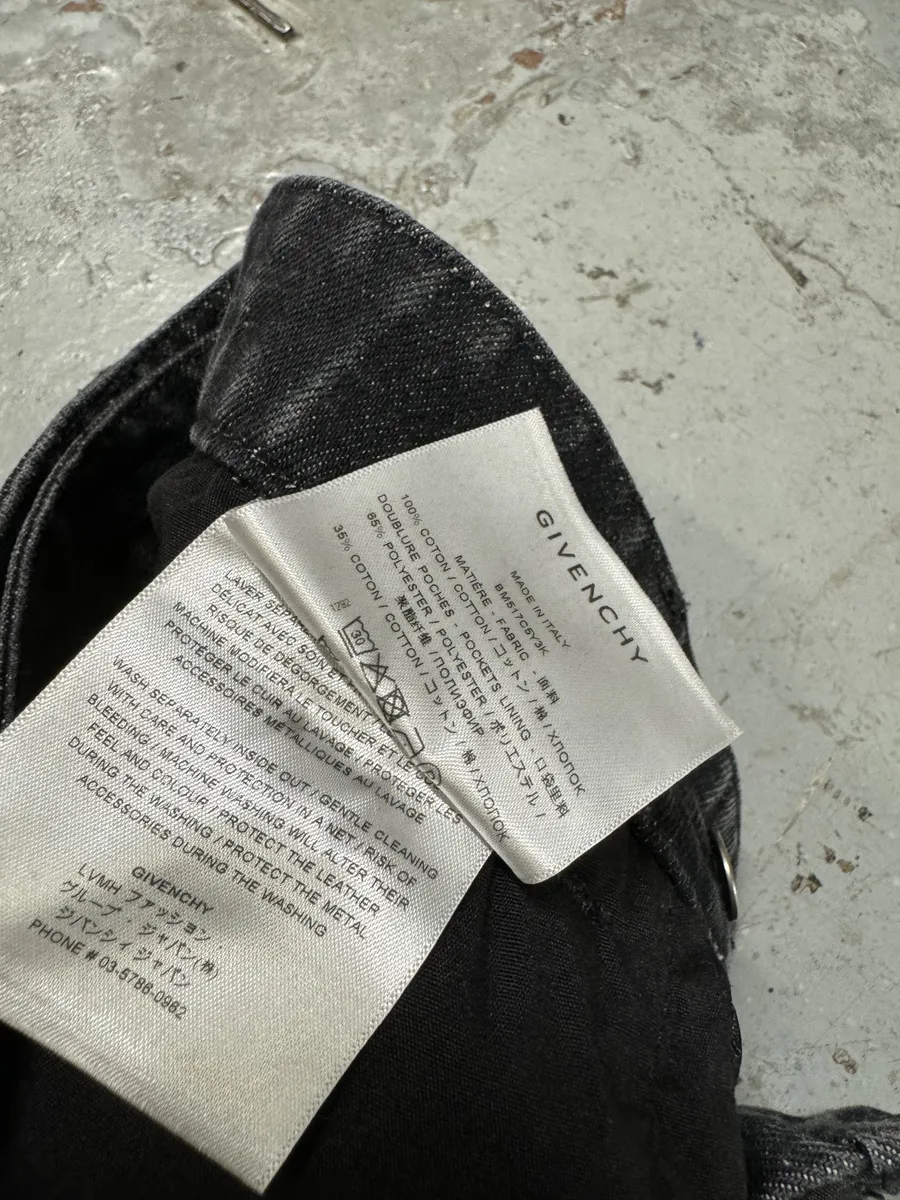 GIVENCHY
MADE IN ITALY
BM517C5Y3K
MATIÈRE - FABRIC - 面料
100% COTON / COTTON / コットン / 棉 / ХЛОПОК
DOUBLURE POCHES - POCKETS LINING - 口袋里料
65% POLYESTER / POLYESTER / ポリエステル /
聚酯纤维 / ПОЛИЭФИР
35% COTON / COTTON / コットン / 棉 / ХЛОПОК
1292
30
LAVER
DELICAT AVEC SOIN ET
RISQUE DE DÉGORGEMENT /
MACHINE MODIFIERA LE TOUCHER ET LE
PROTEGER LE CUIR AU LAVAGE / PROTEGER LES
ACCESSOIRES METALLIQUES AU LAVAGE
WASH SEPARATELY INSIDE OUT / GENTLE CLEANING
WITH CARE AND PROTECTION IN A NET / RISK OF
BLEEDING / MACHINE WASHING WILL ALTER THEIR
FEEL AND COLOUR / PROTECT THE LEATHER
DURING THE WASHING / PROTECT THE METAL
ACCESSORIES DURING THE WASHING
GIVENCHY
LVMH ファッション・
グループ・ジャパン(株)
ジバンシィ ジャパン
PHONE # 03-5786-0962